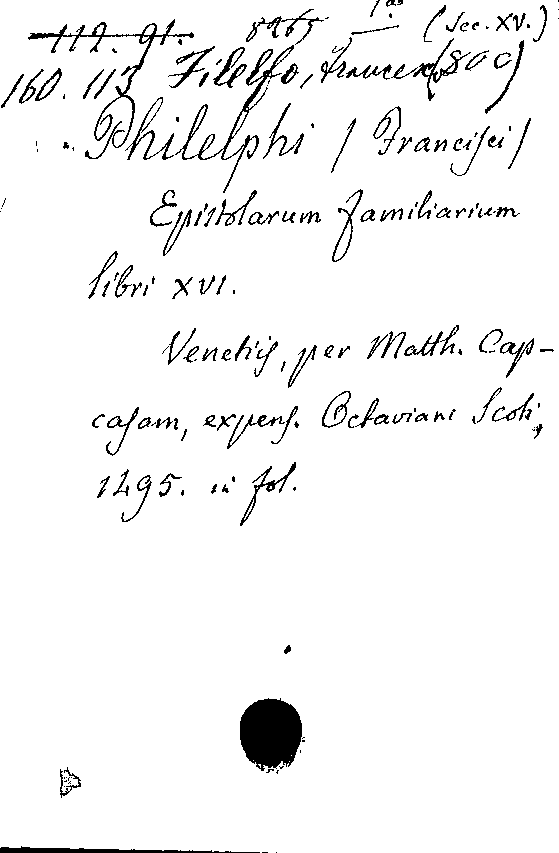 112. 91. 8265 (Sec. XV.)
160. 113 Filelfo, Francesco (800)
Philelphi / Francisci /
Epistolarum familiarium
libri XVI.
Venetiis, per Matth. Cap-
casam, expens. Octaviani Scoti,
1495. in fol.